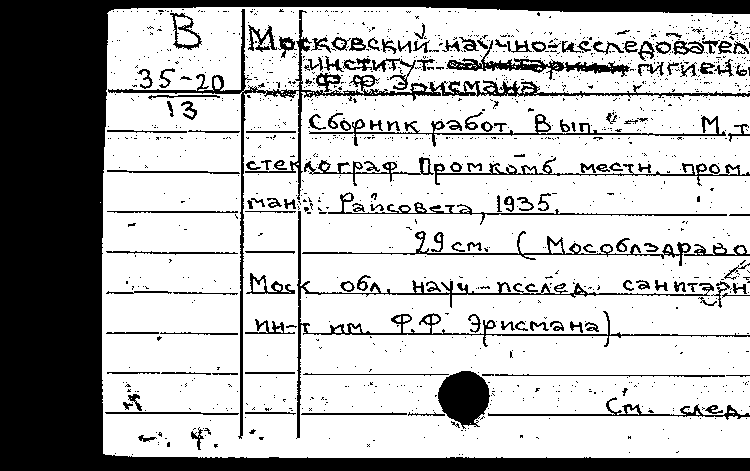 В
35-20
13
Московский научно-исследовател
институт санитарный гигиены
Ф Ф Эрисмана
Сборник работ. Вып. М., т
стеклограф Промкомб. местн. пром.
Райсовета, 1935.
29 см. (Мособлздраво
Моск обл. науч.-исслед. санитарн
ин-т им. Ф.Ф. Эрисмана).
См. след.